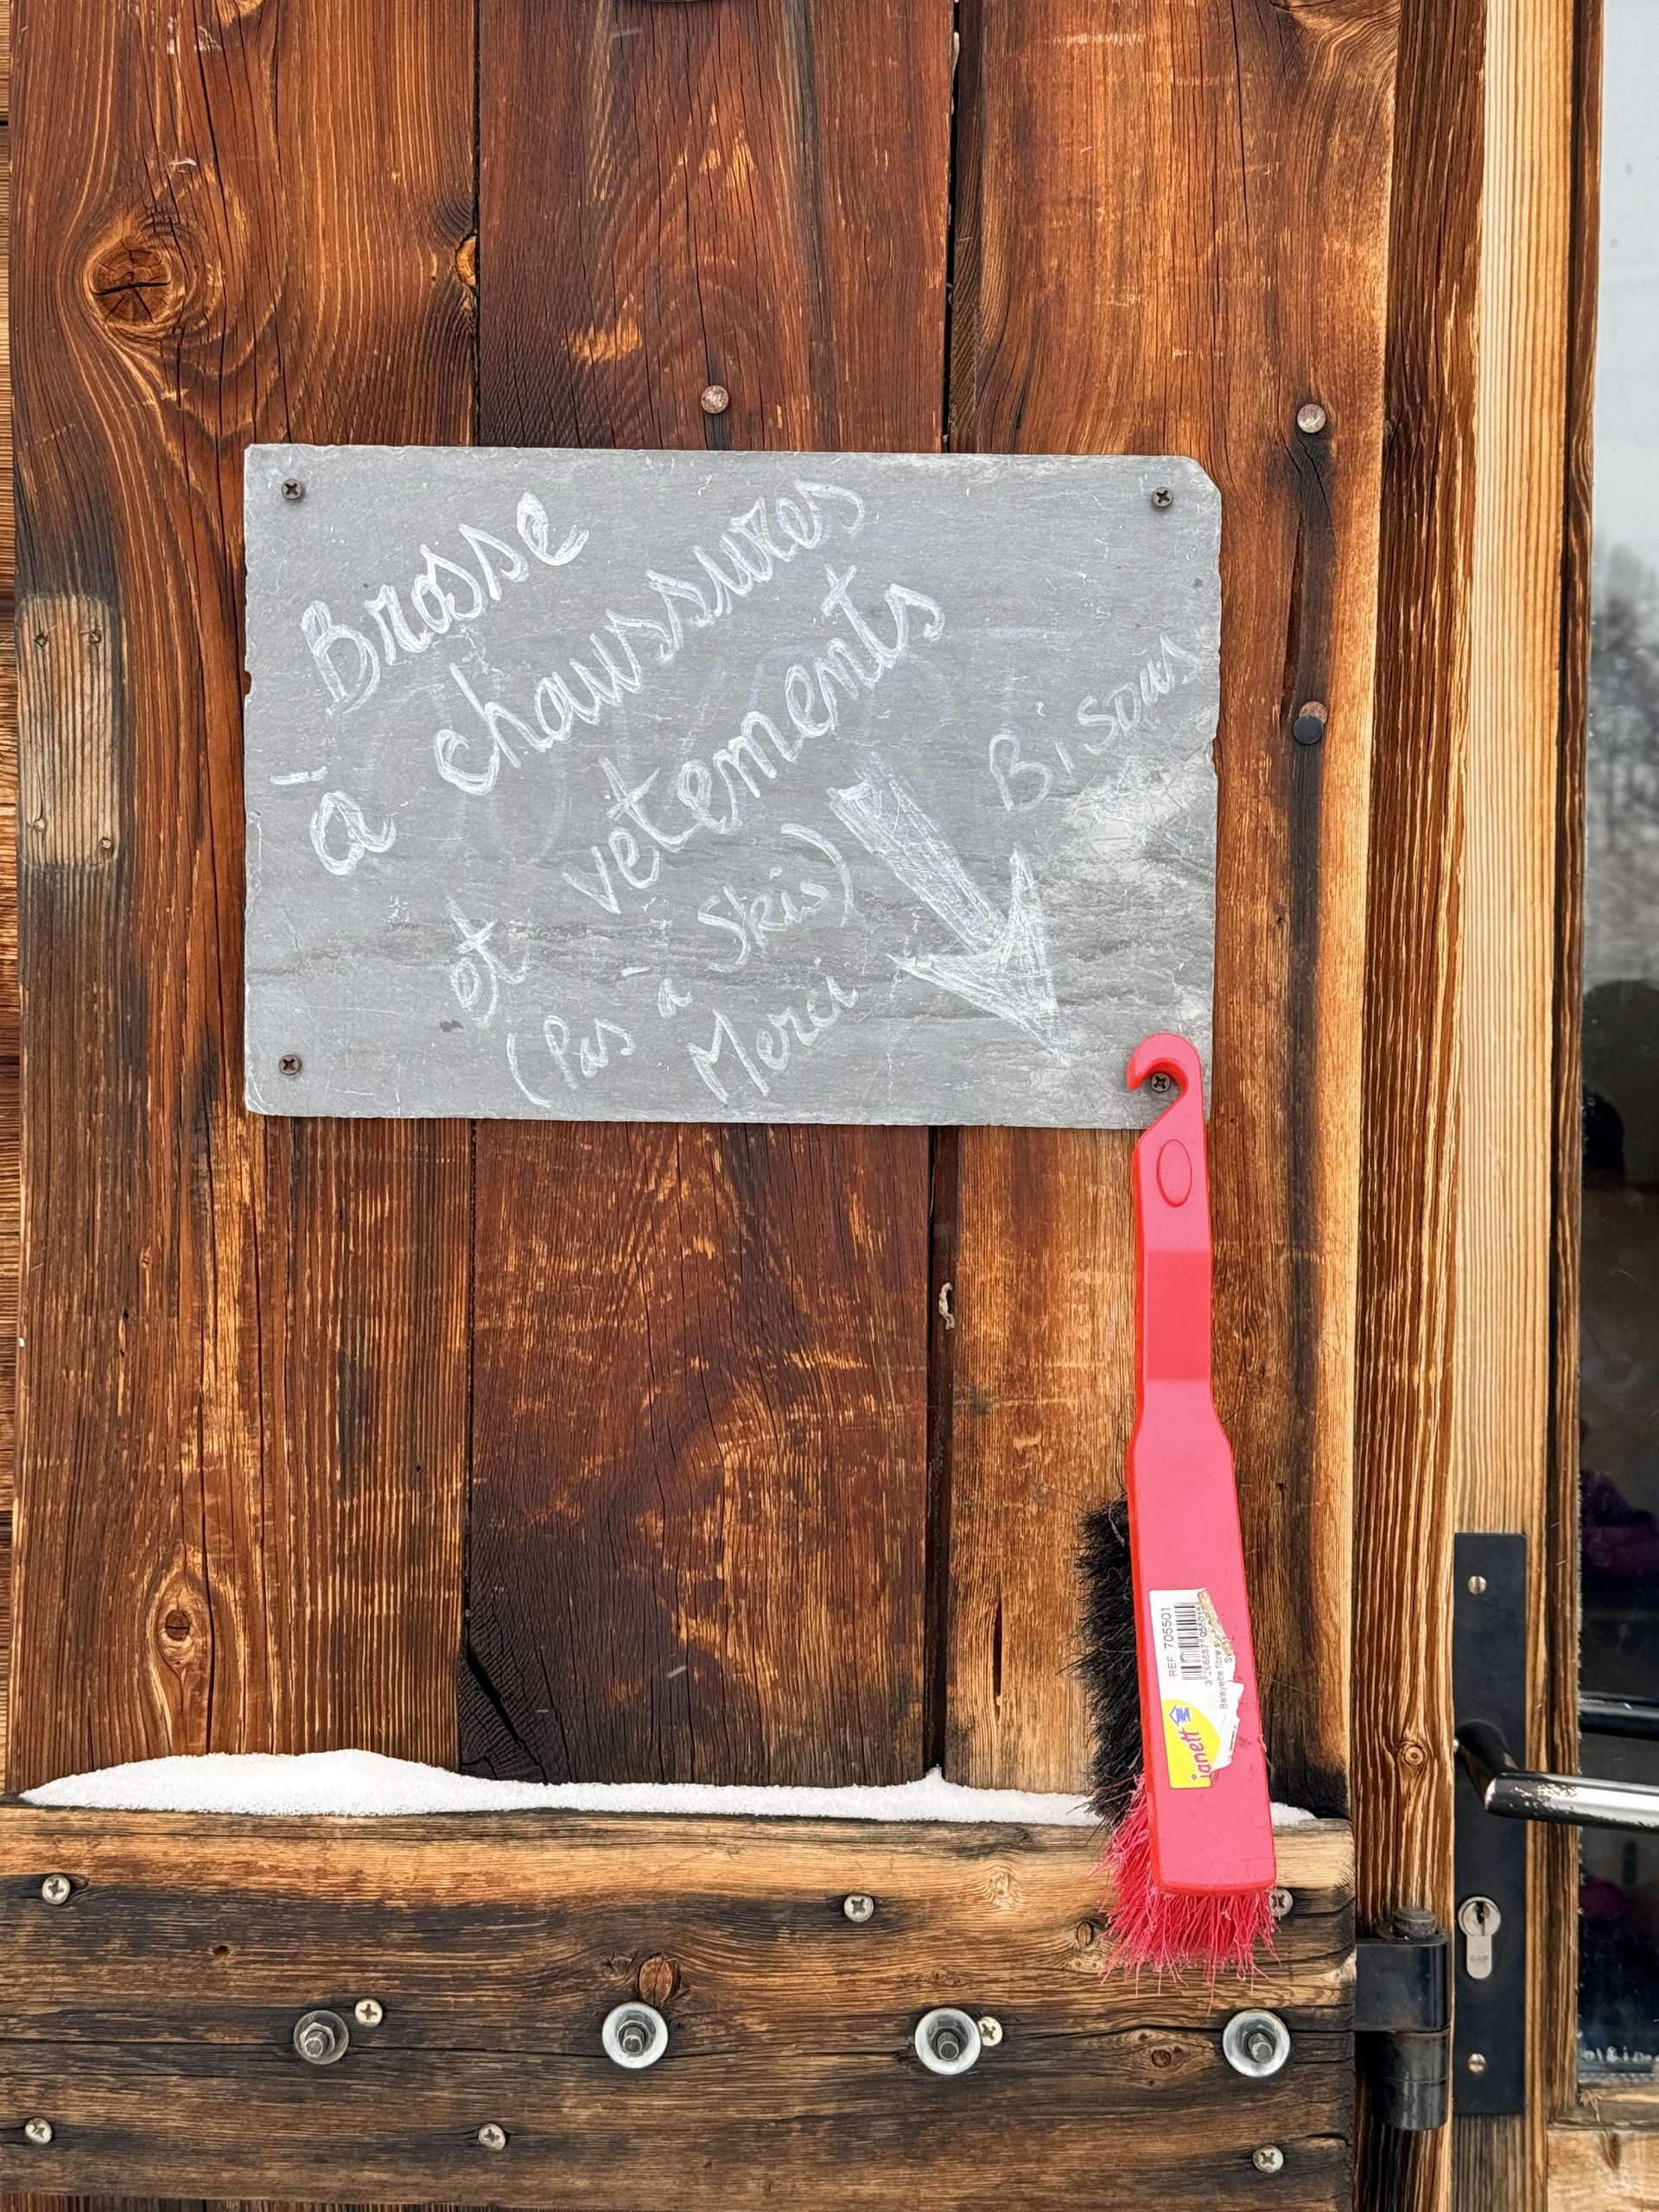 Brosse
à chaussures
et vetements
(Pas à Skis)
Merci
Bisous
REF 705501
Balayette fibre
janett